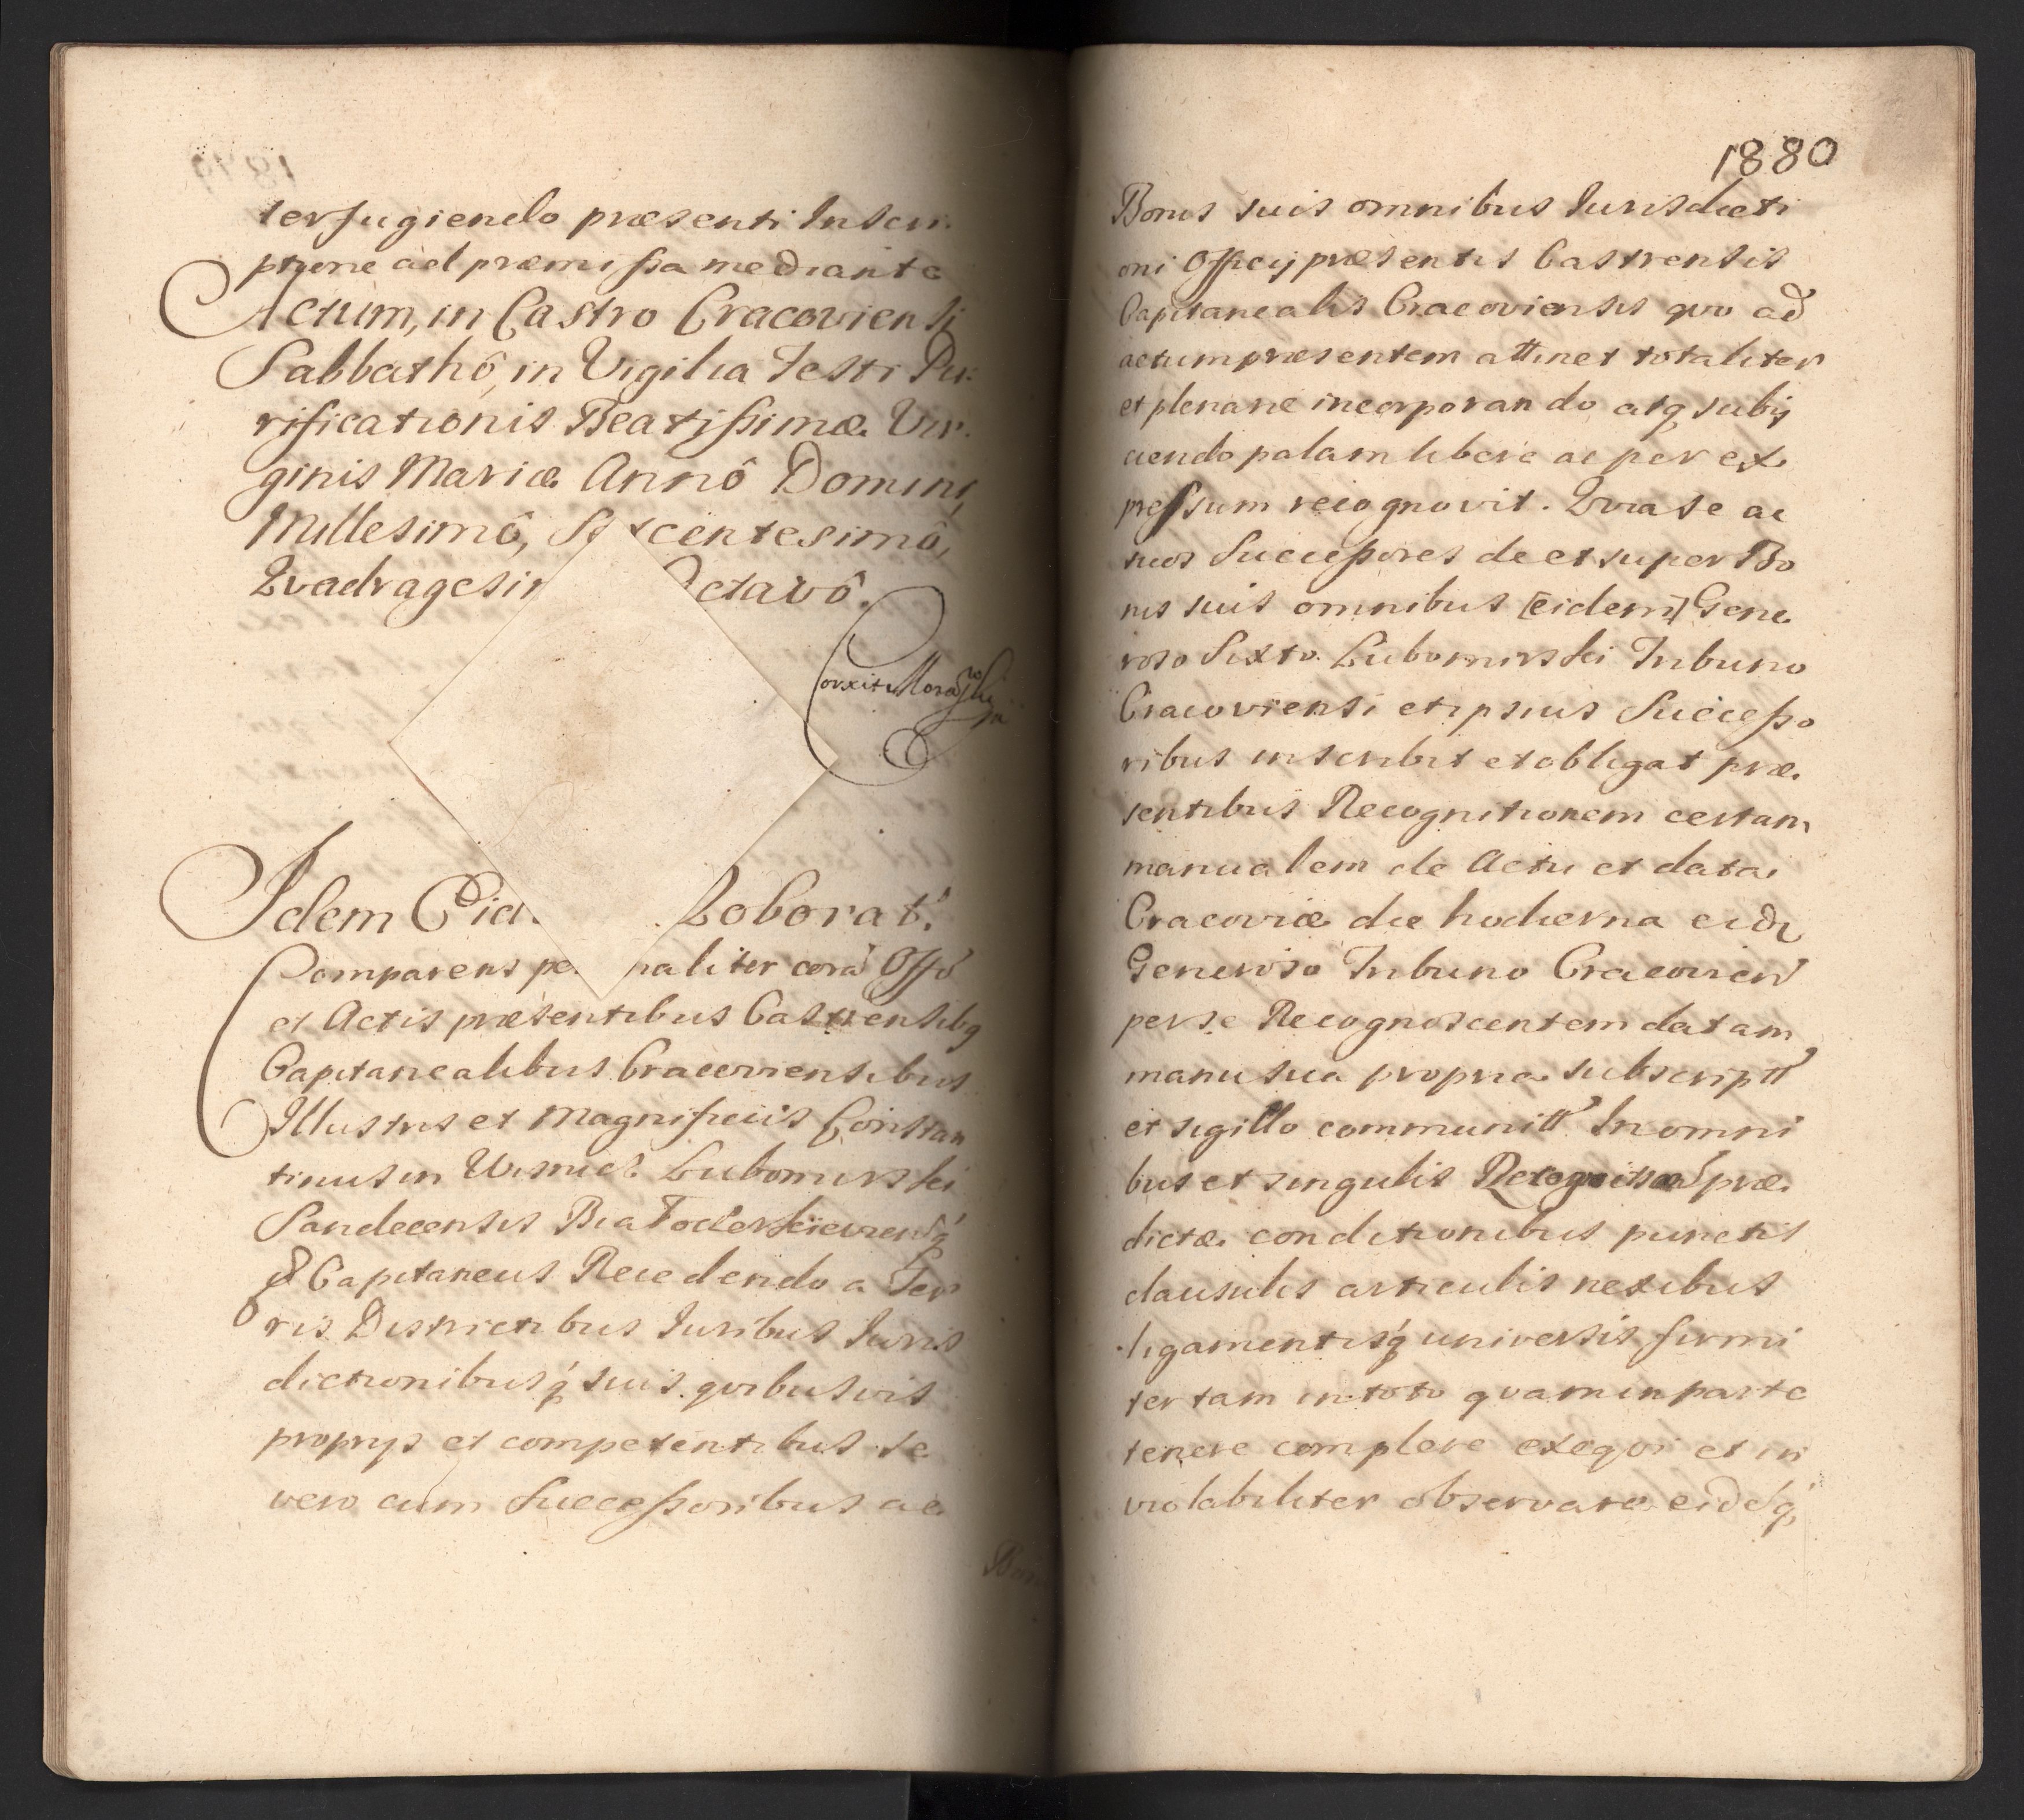 terfugiendo præsenti Inscri-
ptione ad præmissa mediante
Actum, in Castro Cracoviensi
Sabbathô, in Vigilia Festi Pu-
rificationis Beatissimæ Vir-
ginis Mariæ Annô Domini,
Millesimô, S xcentesimô,
Qvadragesi Octavô.
Idem Roborat.
Comparens naliter corã Offõ
et Actis præsentibus Castrensibq
Capitanealibus Cracoviensibus
Illustris et Magnificus Constan
tinus in Wisnicz Lubomirski
Sandecensis
Capitaneus Recedendo a Ter
ris Districtibus Iuribus Iuris
dictionibusq́ suis qvibusvis
proprijs et competentibus se
vero cum Successoribus ac
1880
Bonis suis omnibus Iurisdicti
oni Officij præsentis Castrensis
Capitanealis Cracoviensis qvo ad
actum præsentem attinet totaliter
et plenarie incorporando atq subij
ciendo palam libere ac per ex
pressum recognovit. Qvia se ac
suos Successores de et super Bo
nis suis omnibus [eidem] Gene
roso Sixto Lubomirski Tribuno
Cracoviensi et ipsius Successo
ribus inscribit et obligat præ
sentibus Recognitionem certam
manualem de Actu et data
Cracoviæ die hodierna eidẽ
Generoso Tribuno Cracovien̄
per se Recognoscentem datam
manu sua propria subscriptt̃
et sigillo communitt̃ In omni
bus et singulis præ
dictæ conditionibus punctis
clausulis articulis nexibus
ligamentisq́ universis firmi
ter tam in toto qvam in parte
tenere complere exeqvi et in
violabiliter observare